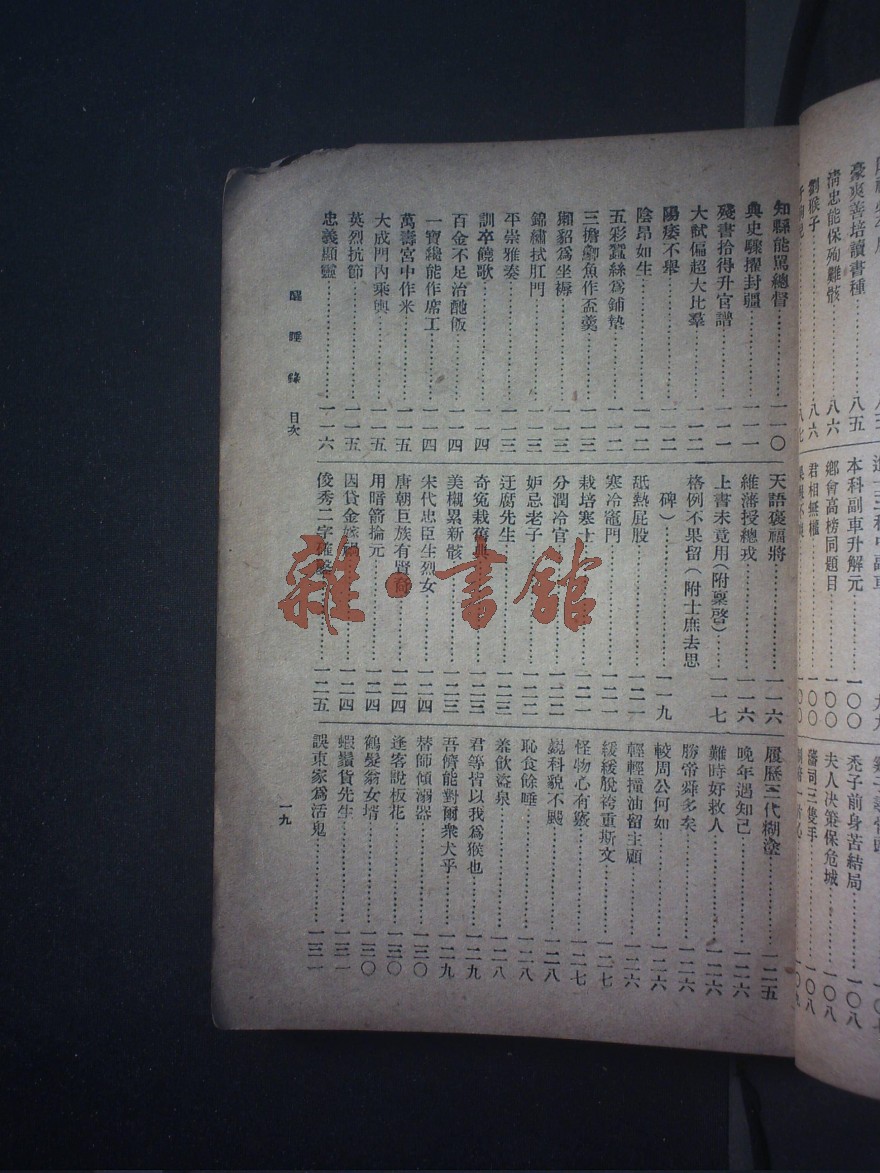 豪爽善培讀書種⋯⋯八五
清忠能保殉難骸⋯⋯八六
劉猴子⋯⋯八六
本科副車升解元⋯⋯一〇〇
鄉會高榜同題目⋯⋯一〇〇
君相無權⋯⋯一〇〇
禿子前身苦結局⋯⋯一〇八
夫人決策保危城⋯⋯一〇八
知縣能罵總督⋯⋯一一〇
典史驟擢封疆⋯⋯一一一
殘書拾得升官譜⋯⋯一一一
大試偏超大比羣⋯⋯一一二
陽痿不舉⋯⋯一一二
陰昂如生⋯⋯一一二
五彩蠶絲爲鋪墊⋯⋯一一二
三擔鯽魚作盃羹⋯⋯一一三
獺貂爲坐褥⋯⋯一一三
錦繡拭肛門⋯⋯一一三
平崇雅奏⋯⋯一一三
訓卒饒歌⋯⋯一一四
百金不足治酏飯⋯⋯一一四
一寶纔能作席工⋯⋯一一四
萬壽宮中作米⋯⋯一一五
大成門內乘輿⋯⋯一一五
英烈抗節⋯⋯一一五
忠義顯靈⋯⋯一一六
天語褒福將⋯⋯一一六
維藩授總戎⋯⋯一一六
上書未竟用(附稟啓)⋯⋯一一七
格例不果留(附士庶去思
碑)⋯⋯一一九
舐熱屁股⋯⋯一二一
寒冷竈門⋯⋯一二一
栽培寒士⋯⋯一二一
分潤冷官⋯⋯一二二
妒忌老子⋯⋯一二二
迂腐先生⋯⋯一二三
奇冤栽舊典⋯⋯一二三
美櫬累新骸⋯⋯一二三
宋代忠臣生烈女⋯⋯一二四
唐朝巨族有賢裔⋯⋯一二四
用暗箭掄元⋯⋯一二四
因貸金嫁禍⋯⋯一二四
俊秀二字確鑿⋯⋯一二五
履歷三代糊塗⋯⋯一二五
晚年遇知己⋯⋯一二六
難時好救人⋯⋯一二六
勝帝舜多矣⋯⋯一二六
較周公何如⋯⋯一二六
輕輕撞油留主顧⋯⋯一二六
緩緩脫袴重斯文⋯⋯一二七
怪物心有竅⋯⋯一二七
銳科貌不颺⋯⋯一二八
恥食餘唾⋯⋯一二八
羞飲盜泉⋯⋯一二八
君等皆以我爲猴也⋯⋯一二九
吾儕能對爾衆犬乎⋯⋯一二九
替師傾溺器⋯⋯一三〇
逢客說板花⋯⋯一三〇
鶴髮翁女壻⋯⋯一三〇
蝦鬚貨先生⋯⋯一三一
誤東家爲活鬼⋯⋯一三一
醒睡錄 目次
一九
雜·書館